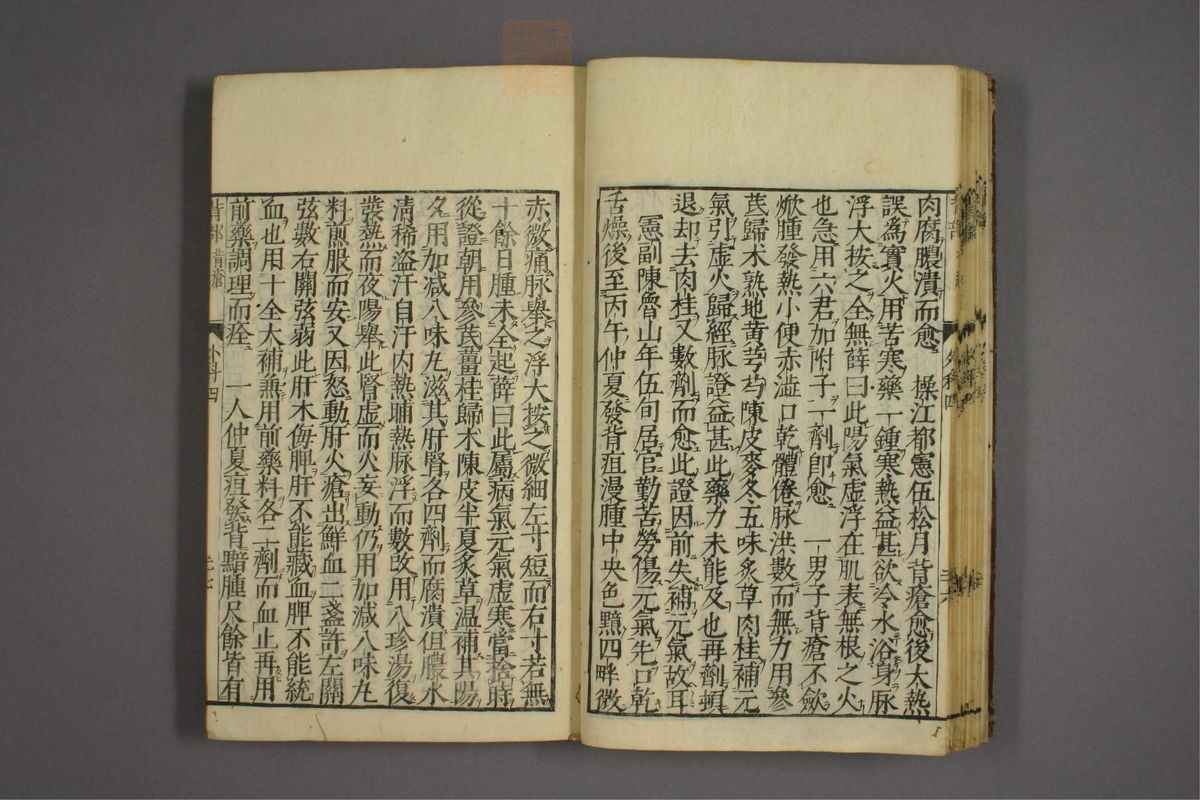 肉腐膿潰而愈　操江都憲伍松月背瘡愈後大熱
誤為實火用苦寒藥一鍾寒熱益甚欲冷水浴身脉
浮大按之全無薛曰此陽氣虛浮在肌表無根之火
也急用六君加附子一劑即愈　一男子背瘡不斂
焮腫發熱小便赤澁口乾體倦脉洪數而無力用參
芪歸术熟地黄芎芍陳皮麥冬五味炙草肉桂補元
氣引虛火歸經脉證益甚此藥力未能及也再劑頓
退却去肉桂又數劑而愈此證因前失補元氣故耳
憲副陳魯山年伍旬居官勤苦勞傷元氣先口乾
舌燥後至丙午仲夏發背疽漫腫中央色黯四畔微
赤微痛脉舉之浮大按之微細左寸短而右寸若無
十餘日腫未全起薛曰此屬病氣元氣虛寒當捨時
從證朝用參芪薑桂歸术陳皮半夏炙草温補其陽
夕用加减八味丸滋其肝腎各四劑而腐潰但膿水
清稀盜汗自汗内熱晡熱脉浮而數改用八珍湯復
發熱而夜陽舉此腎虛而火妄動仍用加减八味丸
料煎服而安又因怒動肝火瘡出鮮血二盞許左關
弦數右關弦弱此肝木侮脾肝不能藏血脾不能統
血也用十全大補兼用前藥料各二劑而血止再用
前藥調理而痊　一人仲夏疽發背黯腫尺餘皆有
背部　背瘡　外科四